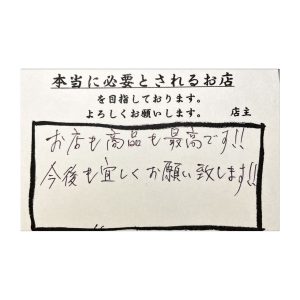 本当に必要とされるお店
を目指しております。
よろしくお願いします。 店主
お店も商品も最高です!!
今後も宜しくお願い致します!!